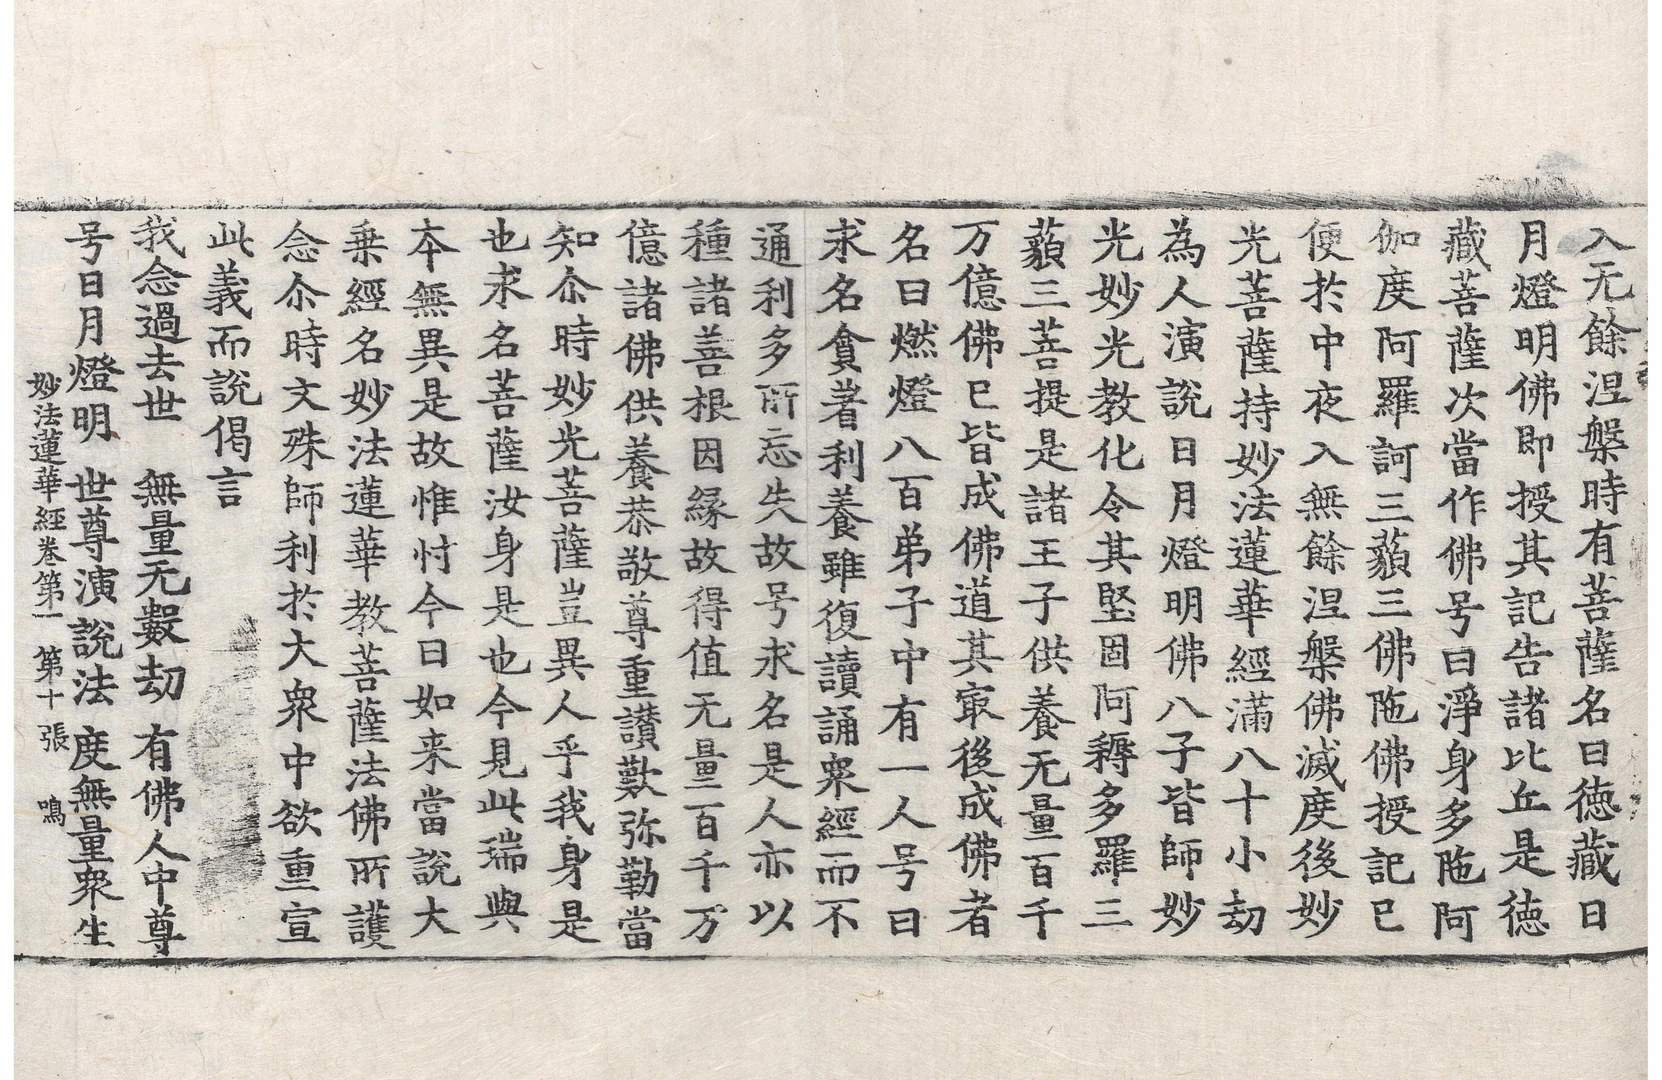 入无餘涅槃時有菩薩名曰德藏日
月燈明佛即授其記告諸比丘是德
藏菩薩次當作佛号曰淨身多陁阿
伽度阿羅訶三藐三佛陁佛授記已
便於中夜入無餘涅槃佛滅度後妙
光菩薩持妙法蓮華經滿八十小劫
為人演說日月燈明佛八子皆師妙
光妙光教化令其堅固阿耨多羅三
藐三菩提是諸王子供養无量百千
万億佛已皆成佛道其㝡後成佛者
名曰燃燈八百弟子中有一人号曰
求名貪著利養雖復讀誦衆經而不
通利多所忘失故号求名是人亦以
種諸善根因緣故得值无量百千万
億諸佛供養恭敬尊重讃歎弥勒當
知尒時妙光菩薩豈異人乎我身是
也求名菩薩汝身是也今見此瑞與
本無異是故惟忖今日如来當說大
乗經名妙法蓮華教菩薩法佛所護
念尒時文殊師利於大衆中欲重宣
此義而說偈言
我念過去世　無量无數劫　有佛人中尊
号日月燈明　世尊演說法　度無量衆生
妙法蓮華經卷第一　第十張　鳴